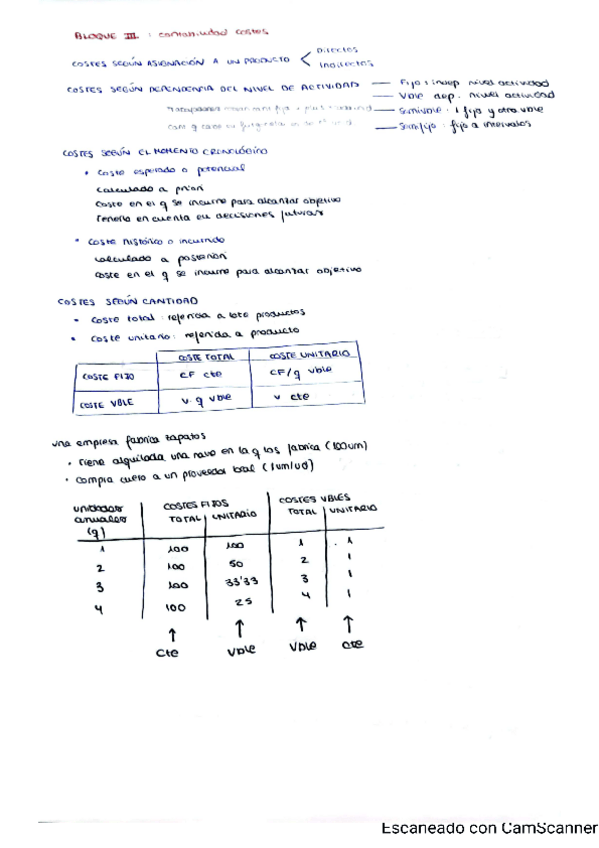 BLOQUE III : contabilidad costes
COSTES SEGÚN ASIGNACIÓN A UN PRODUCTO < Directos
Indirectos
COSTES SEGÚN DEPENDENCIA DEL NIVEL DE ACTIVIDAD — Fijo : indep nivel actividad
— Vble dep. nivel actividad
Trabajadores fijo + — Semivble : 1 fijo y otro vble
— Semifijo : fijo a intervalos
COSTES SEGÚN EL MOMENTO CRONOLÓGICO
• Coste esperado o potencial
calculado a priori
coste en el q se incurre para alcanzar objetivo
Tenerlo en cuenta en decisiones futuras
• Coste histórico o incurrido
calculado a posteriori
coste en el q se incurre para alcanzar objetivo
COSTES SEGÚN CANTIDAD
• Coste total : referida a toto productos
• Coste unitario : referida a producto
COSTE TOTAL COSTE UNITARIO
COSTE FIJO CF cte CF/q vble
COSTE VBLE v · q vble v cte
una empresa fabrica zapatos
• Tiene alquilada una nave en la q los fabrica (100um)
• Compra cuero a un proveedor total (1um/ud)
unidades anuales (q) COSTES FIJOS COSTES VBLES
TOTAL UNITARIO TOTAL UNITARIO
1 100 100 1 1
2 100 50 2 1
3 100 33'33 3 1
4 100 25 4 1
↑ ↑ ↑ ↑
Cte Vble Vble Cte
Escaneado con CamScanner